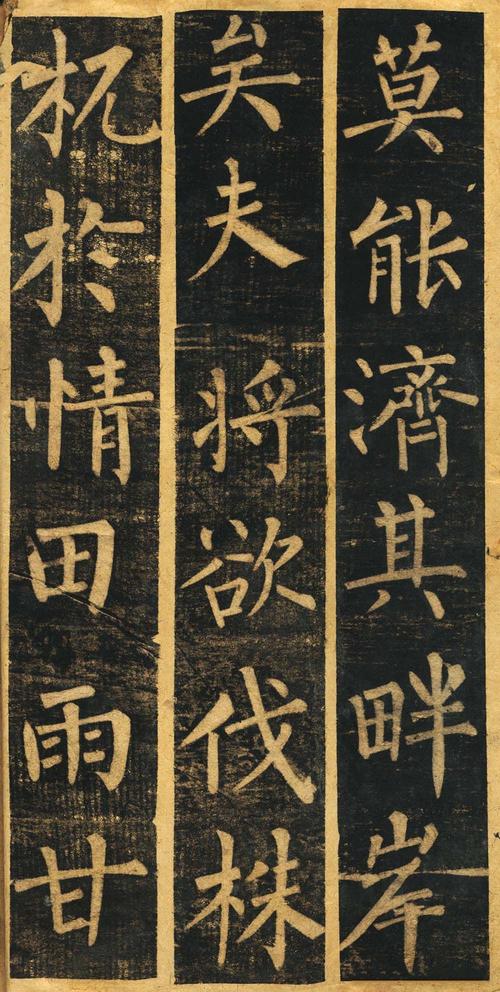 莫能濟其畔岸
矣夫將欲伐株
杌於情田雨甘